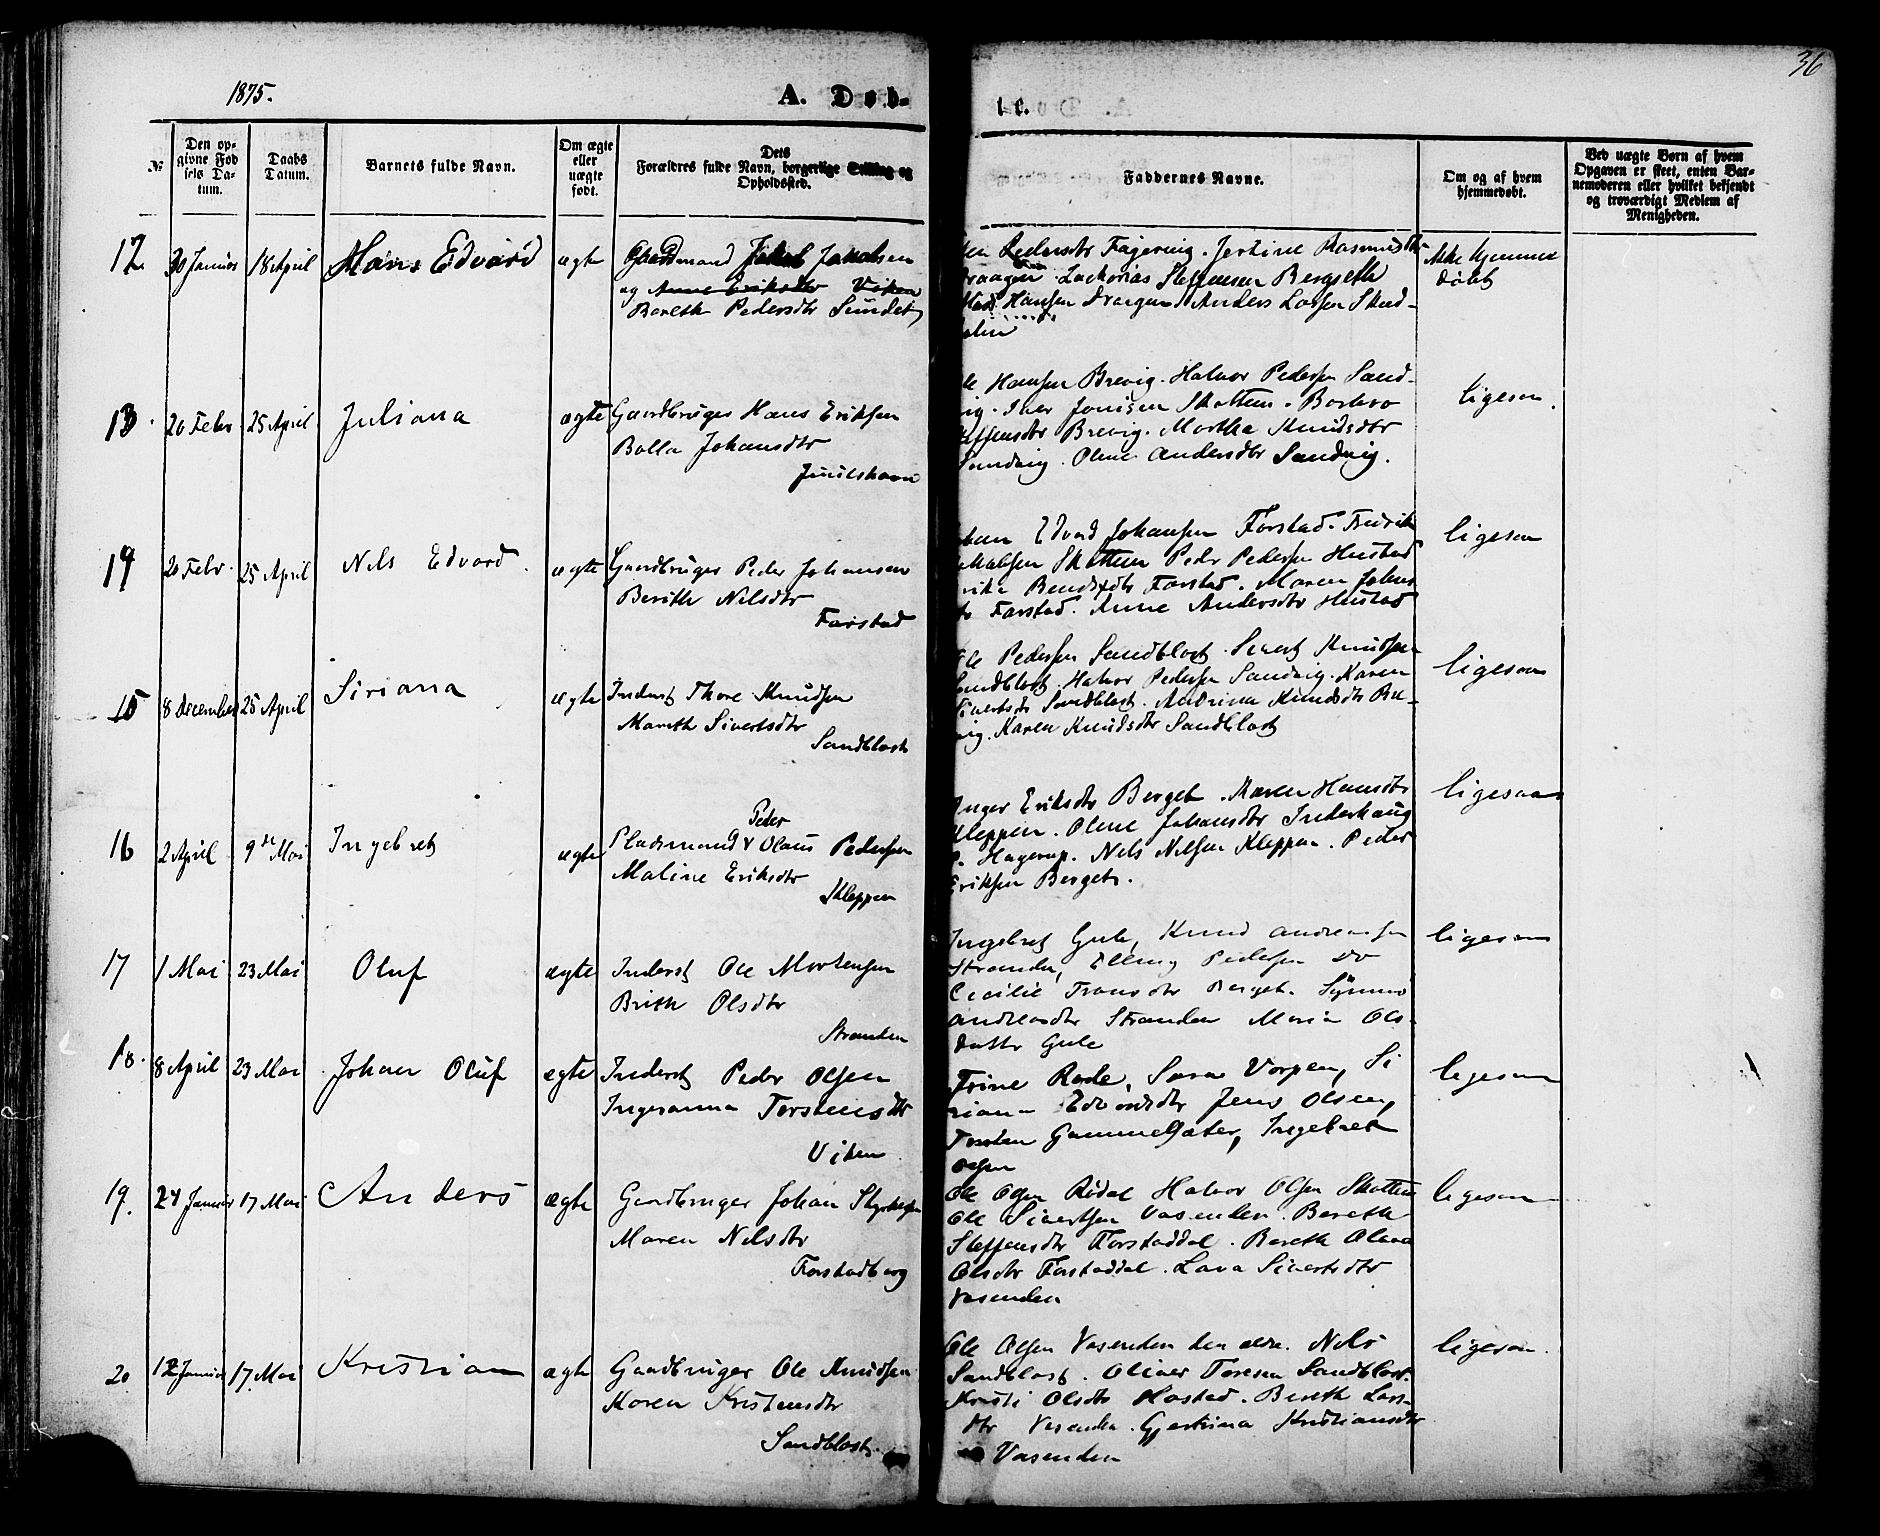 1875.
A. Døb-
te.
36
№
Den op-
givne Fød
sels Da-
tum.
Daabs
Datum.
Barnets fulde Navn.
Om ægte
eller
uægte
født.
Dets
Forældres fulde Navn, borgerlige Stilling og
Opholdssted.
Faddernes Navne.
Om og af hvem
hjemmedøbt.
Ved uægte Børn af hvem
Opgaven er skeet, enten Bar-
nemoderen eller hvilket bekjendt
og troværdigt Medlem af
Menigheden.
12 30 Januar 18 April Hans Edvard ægte Jakob Jakobsen
og Anne Eriksdtr Viken
Bereth Pedersdtr Sundet
Pedersdtr Fagervig. Jertine Rasmusdtr
Draagen. Zackarias Steffensen Bergseth
Hansen Draagen. Anders Larsen Skad-
Ikke hjemme
døbt
13. 20 Febr 25 April Juliana ægte Gaardbruger Hans Eriksen
Bolla Johansdtr
Juulshavn
Hansen Brevig. Halvor Pedersen Sand-
vig. Iver Skotten. Barbro
Steffensdtr Brevig. Martha Knudsdtr
Sandvig. Oline Andersdtr Sandvig.
ligesom.
14 20 Febr. 25 April Nels Edvard. ægte Gaardbruger Peder Johansen
Berith Nilsdtr
Farstad
Edvard Johansen Farstad. Fredrik
Skotten Peder Pedersen Hustad
Farstad. Maren Johns
Farstad. Anne Andersdtr Hustad
ligesom
15 8 December 25 April Siriana ægte Inderst Thore Knudsen
Mareth Sivertsdtr
Sandblost
Ole Pedersen Sandblost. Sivert Knudsen
Sandblost. Halvor Pedersen Sandvig. Karen
Sivertsdtr Sandblost. Andrina Knudsdtr Bre-
vig. Karen Knudsdtr Sandblost
ligesom
16 2 April 9de Mai Ingebret ægte Pladsmand Olaus Pedersen
Peder
Maline Eriksdtr
Kleppen
Inger Eriksdtr Berget. Maren Hansdtr
Kleppen. Oline Johansdtr Inderhaug
Hagerup. Nels Nelsen Kleppen. Peder
Eriksen Berget.
ligesom
17 1 Mai 23 Mai Oluf ægte Inderst Ole Mortensen
Brith Olsdtr
Stranden
Ingebret Gule, Knud Andreassen
Stranden, Elling Pedersen do
Cecilie Fransdtr Berget. Synnev
Andreasdtr Stranden Maria Ols-
datter Gule
ligesom
18. 8 April 23 Mai Johan Oluf ægte Inderst Peder Olsen
Ingeranna Torstensdtr
Viken
Trine Rode, Sara Vorpen, Si
riana Edvardsdtr Jens Olsen,
Torsten Gammelsæter, Ingebret
Olsen
ligesom
19. 24 Januar 17 Mai Anders ægte Gaardbruger Johan
Maren Nilsdtr
Farstadberg
Ole Olsen Rødal Halvor Olsen Skotten
Ole Sivertsen Vasenden. Bereth
Steffensdtr Farstaddal. Bereth Olava
Olsdtr Farstaddal. Lava Sivertsdtr
Vasenden
ligesom
20 12 Januar 17. Mai Kristian ægte Gaardbruger Ole Knudsen
Karen Kristensdtr
Sandblost.
Ole Olsen Vasenden den ældre. Nels
Sandblost. Oliver Toresen Sandblost.
Kristi Olsdtr Hostad. Bereth Lars-
dtr Vasenden. Gjertrina Kristiansdtr
Vasenden
ligesom.